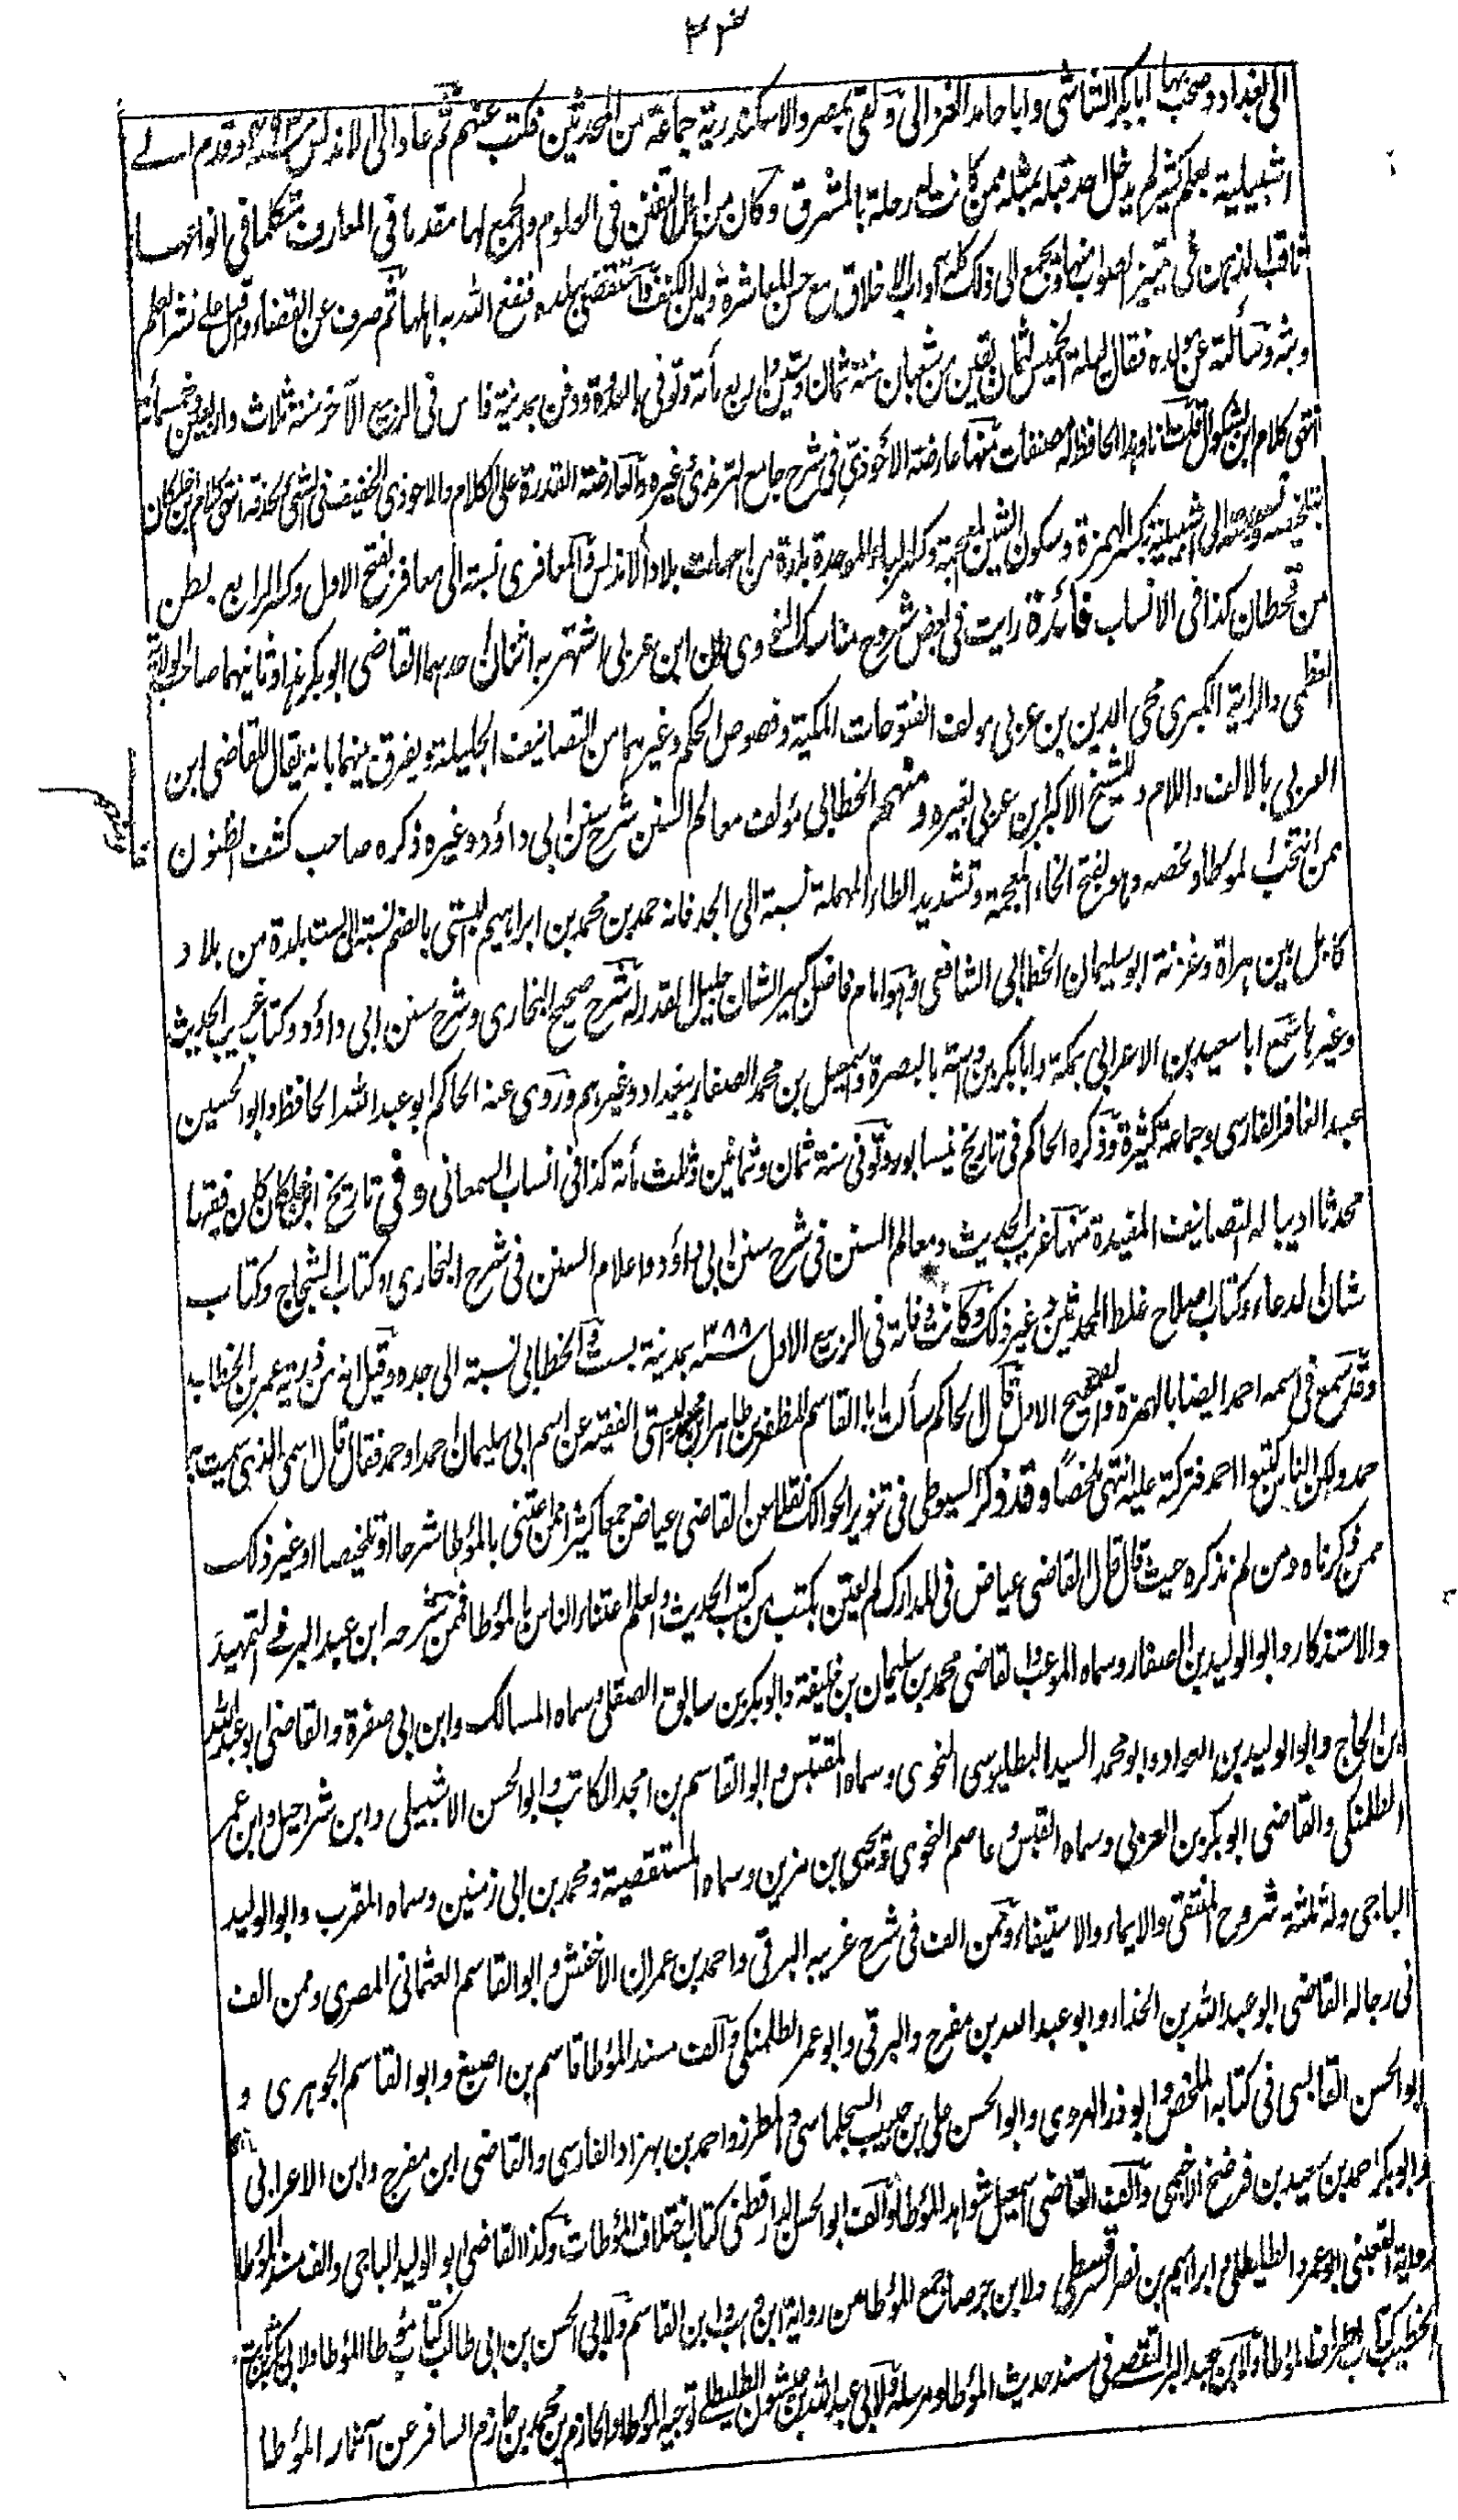 ٢٤
الى بغداد وصحب بها ابا بكر الشاشى وابا حامد الغزالى ولقى بمصر والاسكندرية جماعة من المحدثين فكتب عنهم ثم عاد الى الاندلس سنة ٤٩٣ وقدم الے
اشبيلية بعلم كثير لم يدخل احد قبله بمثله ممن كانت له رحلة بالمشرق وكان من اهل التفنن فى العلوم والجمع لها مقدما فى المعارف متكلما فى انواعها
ثاقب الذهن فى تمييز الصواب منها ويجمع الى ذلك كله آداب الاخلاق مع حسن المعاشرة ولين الكنف واستقضى ببلده فنفع الله به اهلها ثم صرف عن القضاء واقبل على نشر العلم
وبثه وسألته عن مولده فقال ليلة الخميس لثمان بقين من شعبان سنة ثمان وستين واربع مأة وتوفى بالعدوة ودفن بمدينة فاس فى الربيع الآخر سنة ثلاث واربعين وخمسمأة
انتهى كلام ابن بشكوال قلت انا ولهذا الحافظ مصنفات منها عارضة الاحوذى فى شرح جامع الترمذى وغيره والعارضة القدرة على الكلام والاحوذى الخفيف فى الشئ لحذقه انتهى كلام ابن خلكان
بتلخيصه ونسبته الى اشبيلية بكسر الهمزة وسكون الشين المعجمة وكسر الباء الموحدة بلدة من امهات بلاد الاندلس والمعافرى نسبة الى معافر بفتح الاول وكسر الرابع بطن
من قحطان كذا فى الانساب فائدة رايت فى بعض شروح مناسك النووى ان ابن عربى اشتهر به اثنان احدهما القاضى ابو بكر هذا وثانيهما صاحب الولاية
العظمى والراية الكبرى محى الدين بن عربى مولف الفتوحات المكية وفصوص الحكم وغيرهما من التصانيف الجليلة ويفرق بينهما بانه يقال للقاضى ابن
العربى بالالف واللام وللشيخ الاكبر ابن عربى بغيره ومنهم الخطابى مؤلف معالم السنن شرح سنن ابى داؤد وغيره ذكره صاحب كشف الظنون
ممن انتخب الموطا ولخصه وهو بفتح الخاء المعجمة وتشديد الطاء المهملة نسبة الى الجد فانه حمد بن محمد بن ابراهيم البستى بالضم نسبة الى بست بلدة من بلاد
كابل بين هراة وغزنة ابو سليمان الخطابى الشافعى وهو امام فاضل كبير الشان جليل القدر له شرح صحيح البخارى وشرح سنن ابى داؤد وكتاب غريب الحديث
وغيرها سمع ابا سعيد بن الاعرابى بمكة وابا بكر بن داسة بالبصرة واسمعيل بن محمد الصفار ببغداد وغيرهم وروى عنه الحاكم ابو عبد الله الحافظ وابو الحسين
عبد الغافر الفارسى وجماعة كثيرة وذكره الحاكم فى تاريخ نيسابور وتوفى سنة ثمان وثمانين وثلث مأة كذا فى انساب السمعانى وفى تاريخ ابن خلكان كان فقيها
محدثا اديبا له التصانيف المفيدة منها غريب الحديث ومعالم السنن فى شرح سنن ابى داؤد واعلام السنن فى شرح البخارى وكتاب الشجاج وكتاب
شان الدعاء وكتاب اصلاح غلط المحدثين وغير ذلك وكانت وفاته فى الربيع الاول سنة ٣٨٨ بمدينة بست والخطابى نسبة الى جده وقيل انه من ذرية عمر بن الخطاب
وقد سمع فى اسمه احمد ايضا بالهمزة والصحيح الاول قال الحاكم سألت ابا القاسم المظفر بن طاهر بن محمد البستى الفقيه عن اسم ابى سليمان احمد او حمد فقال قال اسمى الذى سميت به
حمد ولكن الناس كتبوا احمد فتركته عليه انتهى ملخصًا وقد ذكر السيوطى فى تنوير الحوالك نقلا عن القاضى عياض جمعا كثيرا ممن اعتنى بالموطا شرحا او تلخيصا او غير ذلك
ممن ذكرناه ومن لم نذكره حيث قال قال القاضى عياض فى المدارك لم يعتن بكتب من كتب الحديث والعلم اعتناء الناس بالموطا فممن شرحه ابن عبد البر فے التمهيد
والاستذكار وابو الوليد بن الصفار وسماه الموعب والقاضى محمد بن سليمان بن خليفة وابو بكر بن سابق الصقلى وسماه المسالك وابن ابى صفرة والقاضى ابو عبد الله
ابن الحاج وابو الوليد بن العواد وابو محمد السيد البطليوسى النحوى وسماه المقتبس وابو القاسم بن امجد الكاتب وابو الحسن الاشبيلى وابن شراحيل وابن عمر
الطلمنكى والقاضى ابو بكر بن العربى وسماه القبس وعاصم النحوى ويحيى بن مزين وسماه المستقصية ومحمد بن ابى زمنين وسماه المقرب وابو الوليد
الباجى وله ثلثة شروح المنتقى والايماء والاستيفاء وممن الف فى شرح غريبه البرقى واحمد بن عمران الاخفش وابو القاسم العثمانى المصرى وممن الف
فى رجاله القاضى ابو عبد الله بن الحذاء وابو عبد الله بن مفرح والبرقى وابو عمر الطلمنكى والف مسند الموطا قاسم بن اصبغ وابو القاسم الجوهرى و
ابو الحسن القابسى فى كتابه الملخص وابو ذر الهروى وابو الحسن على بن حبيب السجلماسى والمطرز واحمد بن بهزاد الفارسى والقاضى ابن مفرح وابن الاعرابى
وابو بكر احمد بن سعيد بن فرضخ الاخيمى والف القاضى اسمعيل شواهد الموطا والف ابو الحسن الدارقطنى كتاب اختلاف الموطات وكذا القاضى ابو الوليد الباجى والف مسند الموطا
رواية القعنبى ابو عمرو الطليطلى وابراهيم بن نصر السرقسطى ولابن جوصا جمع الموطا من رواية ابن وهب وابن القاسم ولابى الحسن بن ابى طالب كتاب موطا الموطا ولابى بكر بن ثابت
الخطيب كتاب اطراف الموطا ولابن عبد البر التقصے فى مسند حديث الموطا ومرسله ولابى عبد الله بن عيشون الطليطلے توجيه الموطا ولحازم بن محمد بن حازم السافر عن آثار الموطا